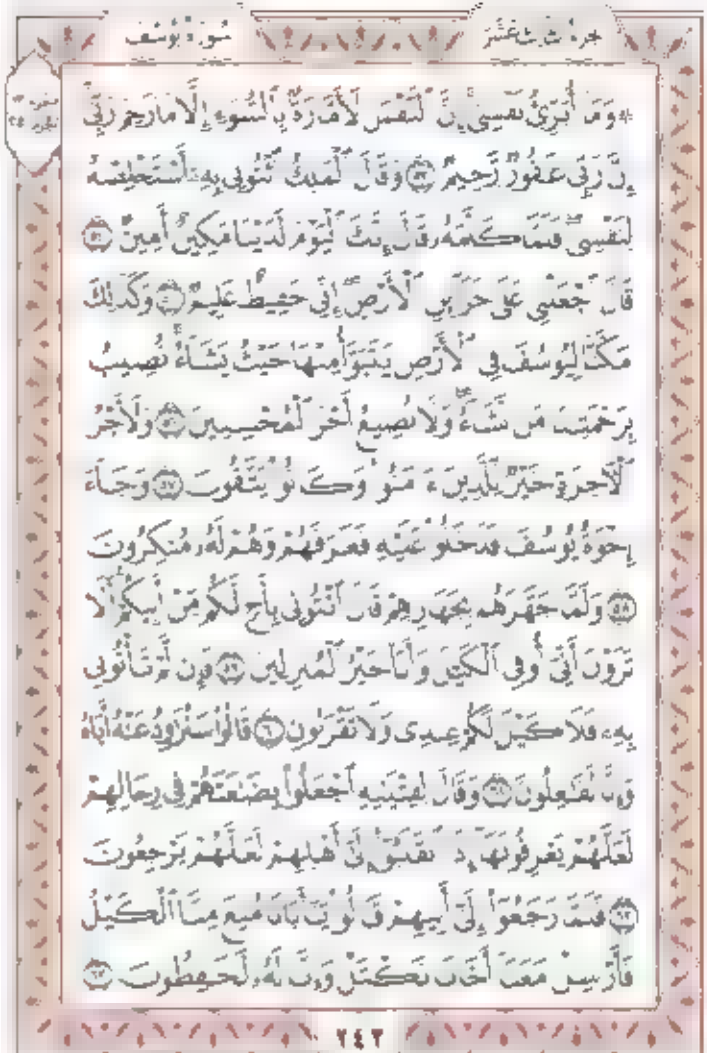 سُورَةُ يُوسُفَ
۞ وَمَا أُبَرِّئُ نَفْسِي إِنَّ ٱلنَّفْسَ لَأَمَّارَةٌ بِٱلسُّوٓءِ إِلَّا مَا رَحِمَ رَبِّيٓ
إِنَّ رَبِّي غَفُورٌ رَّحِيمٌ ٥٣ وَقَالَ ٱلْمَلِكُ ٱئْتُونِي بِهِۦٓ أَسْتَخْلِصْهُ
لِنَفْسِي فَلَمَّا كَلَّمَهُۥ قَالَ إِنَّكَ ٱلْيَوْمَ لَدَيْنَا مَكِينٌ أَمِينٌ ٥٤
قَالَ ٱجْعَلْنِي عَلَىٰ خَزَآئِنِ ٱلْأَرْضِ إِنِّي حَفِيظٌ عَلِيمٌ ٥٥ وَكَذَٰلِكَ
مَكَّنَّا لِيُوسُفَ فِي ٱلْأَرْضِ يَتَبَوَّأُ مِنْهَا حَيْثُ يَشَآءُ نُصِيبُ
بِرَحْمَتِنَا مَن نَّشَآءُ وَلَا نُضِيعُ أَجْرَ ٱلْمُحْسِنِينَ ٥٦ وَلَأَجْرُ
ٱلْأَخِرَةِ خَيْرٌ لِّلَّذِينَ ءَامَنُوا۟ وَكَانُوا۟ يَتَّقُونَ ٥٧ وَجَآءَ
إِخْوَةُ يُوسُفَ فَدَخَلُوا۟ عَلَيْهِ فَعَرَفَهُمْ وَهُمْ لَهُۥ مُنكِرُونَ
٥٨ وَلَمَّا جَهَّزَهُم بِجَهَازِهِمْ قَالَ ٱئْتُونِي بِأَخٍ لَّكُم مِّنْ أَبِيكُمْ أَلَا
تَرَوْنَ أَنِّيٓ أُوفِي ٱلْكَيْلَ وَأَنَا۠ خَيْرُ ٱلْمُنزِلِينَ ٥٩ فَإِن لَّمْ تَأْتُونِي
بِهِۦ فَلَا كَيْلَ لَكُمْ عِندِي وَلَا تَقْرَبُونِ ٦٠ قَالُوا۟ سَنُرَٰوِدُ عَنْهُ أَبَاهُ
وَإِنَّا لَفَٰعِلُونَ ٦١ وَقَالَ لِفِتْيَٰنِهِ ٱجْعَلُوا۟ بِضَٰعَتَهُمْ فِي رِحَالِهِمْ
لَعَلَّهُمْ يَعْرِفُونَهَآ إِذَا ٱنقَلَبُوٓا۟ إِلَىٰٓ أَهْلِهِمْ لَعَلَّهُمْ يَرْجِعُونَ
٦٢ فَلَمَّا رَجَعُوٓا۟ إِلَىٰٓ أَبِيهِمْ قَالُوا۟ يَٰٓأَبَانَا مُنِعَ مِنَّا ٱلْكَيْلُ
فَأَرْسِلْ مَعَنَآ أَخَانَا نَكْتَلْ وَإِنَّا لَهُۥ لَحَٰفِظُونَ ٦٣
٢٤٢